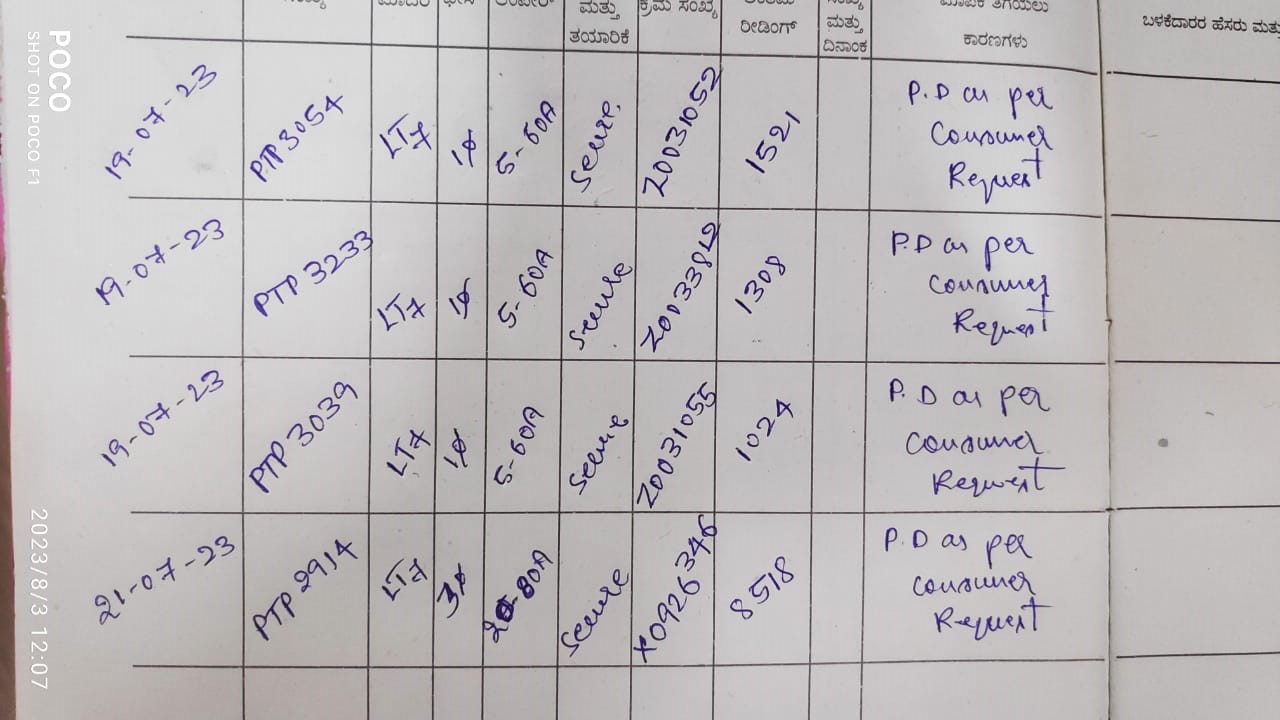 ಮಾದರಿ
ಮತ್ತು
ತಯಾರಿಕೆ
ಕ್ರಮ ಸಂಖ್ಯೆ
ರೀಡಿಂಗ್
ಮತ್ತು
ದಿನಾಂಕ
ಮಾಪಕ ತೆಗೆಯಲು
ಕಾರಣಗಳು
ಬಳಕೆದಾರರ ಹೆಸರು ಮತ್ತು
19-07-23 PTP 3054 LT7 1φ 5-60A Secure Z0031052 1521 P.D as per
Consumer
Request
19-07-23 PTP 3233 LT7 1φ 5-60A Secure 1308 P.D as per
Consumer
Request
19-07-23 PTP 3039 LT7 1φ 5-60A Secure Z0031055 1024 P.D as per
Consumer
Request
21-07-23 PTP 2914 LT7 3φ Secure X0926346 8518 P.D as per
Consumer
Request
POCO
SHOT ON POCO F1
2023/8/3 12:07